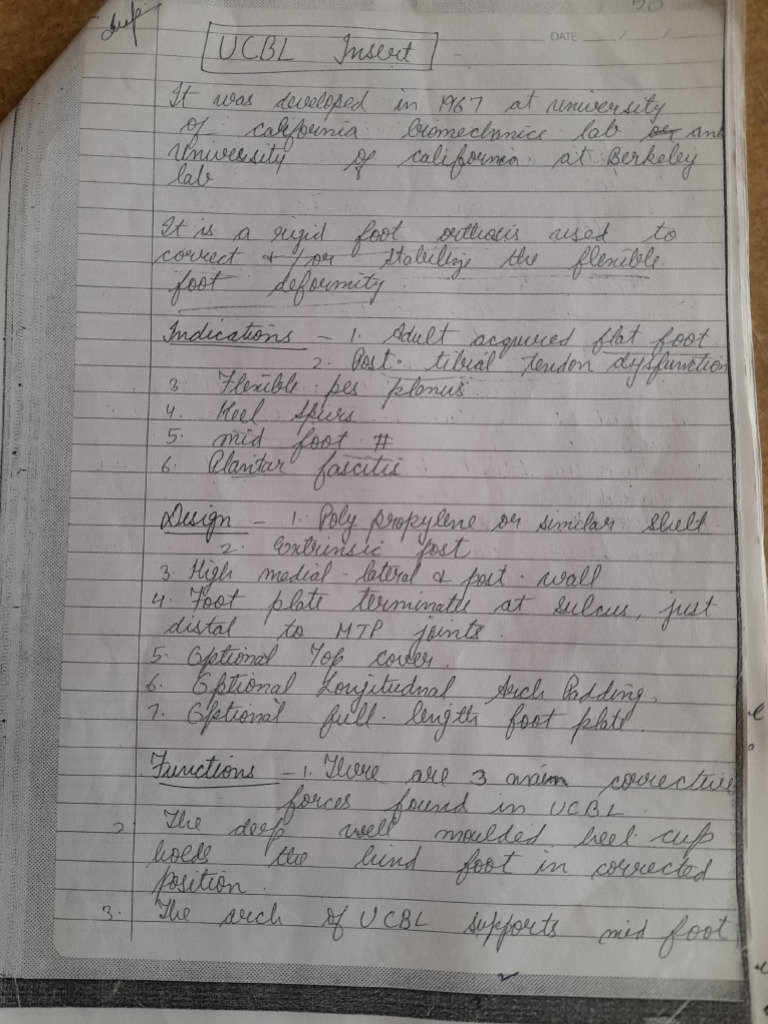 DATE
UCBL Insert
It was developed in 1967 at university
of california biomechanics lab and
University of california at Berkeley
lab
It is a rigid foot orthosis used to
correct & /or stabilize the flexible
foot deformity
Indications - 1. Adult acquired flat foot
2. Post. tibial tendon dysfunction
3 Flexible pes planus
4. Heel spurs
5. mid foot #
6. Plantar fascitis
Design - 1. Poly propylene or similar shell
2. Extrinsic post
3. High medial - lateral & post. wall
4. Foot plate terminate at sulcus, just
distal to MTP joints.
5. Optional Top cover.
6. Optional Longitudnal Arch Padding.
7. Optional full length foot plate.
Functions - 1. There are 3 main corrective
forces found in UCBL
2. The deep well moulded heel cup
holds the hind foot in corrected
position.
3. The arch of UCBL supports mid foot